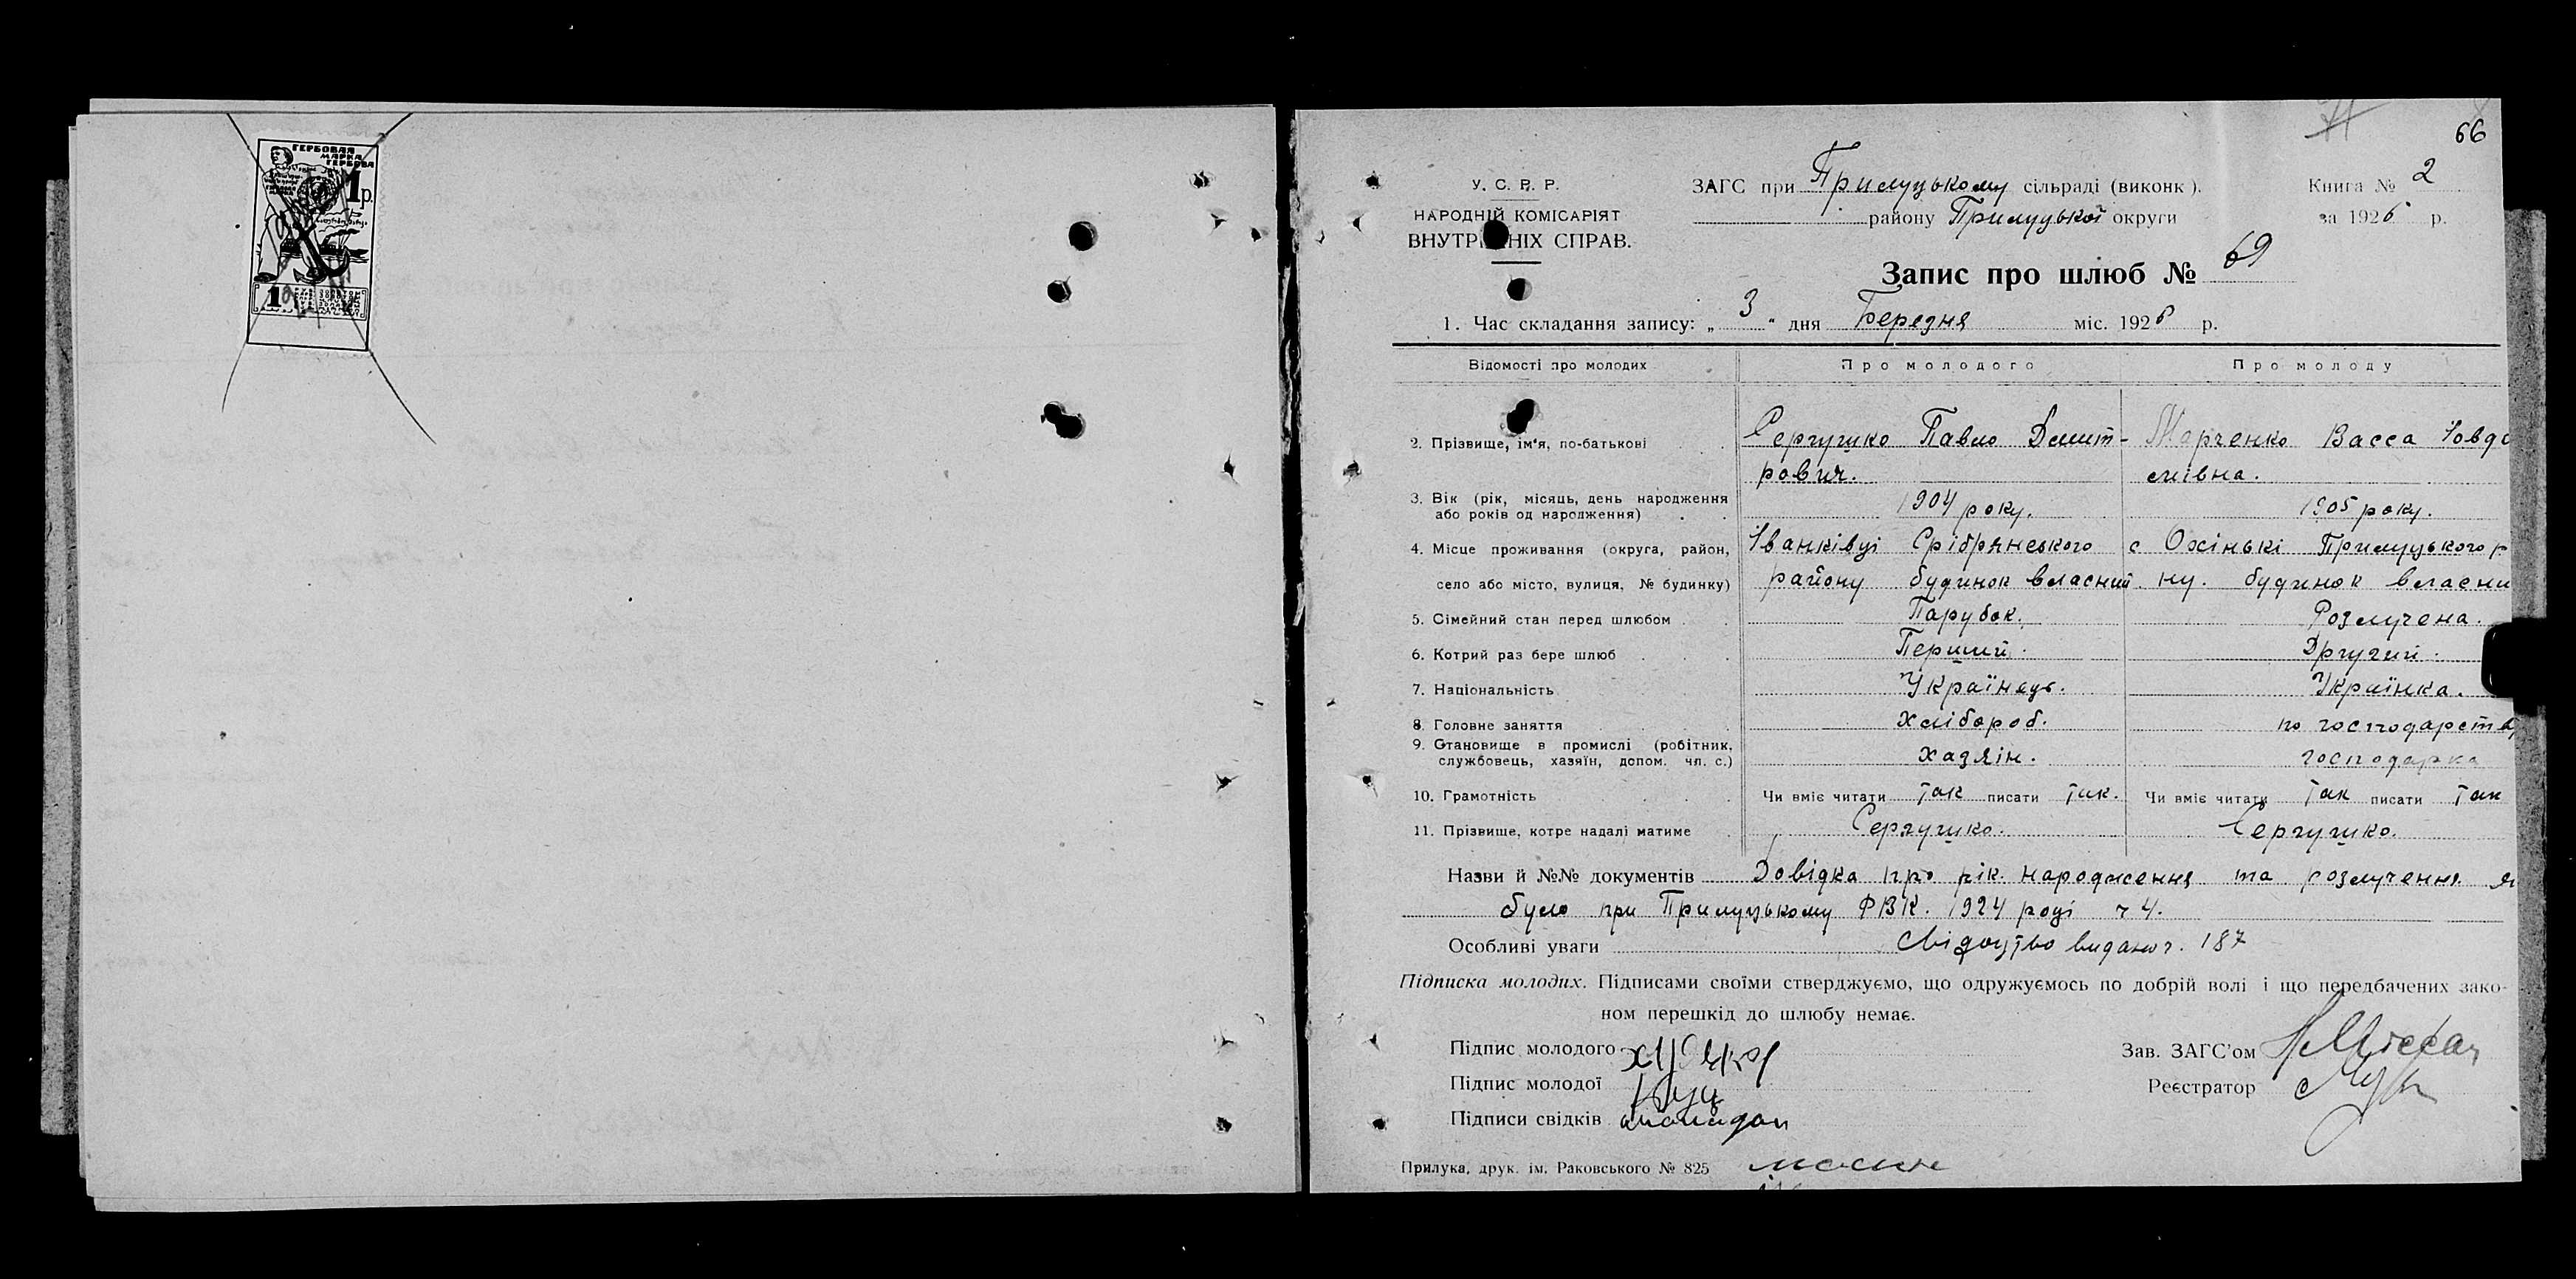 ГЕРБОВАЯ
МАРКА
ГЕРБОВА
1р.
66
У. С. Р. Р.
НАРОДНІЙ КОМІСАРІЯТ
ВНУТРІ НІХ СПРАВ.
ЗАГС при Прилуцькому сільраді (виконк).
району Прилуцької округи
Книга № 2
за 1926 р.
Запис про шлюб № 69
1. Час складання запису: „ 3 " дня Березня міс. 1926 р.
Відомості про молодих Про молодого Про молоду
2. Прізвище, ім'я, по-батькові Сергушко Павло Дмит- Марченко Васса Іовдо
рович. кмівна.
3. Вік (рік, місяць, день народження
або років од народження) 1904 року. 1905 року.
4. Місце проживання (округа, район, Іванківці Срібрянського с Охінькі Прилуцького р
село або місто, вулиця, № будинку) району будинок власний ну. будинок власни
5. Сімейний стан перед шлюбом Парубок. Розлучена.
6. Котрий раз бере шлюб Перший. Другий.
7. Національність Українець. Українка.
8. Головне заняття Хлібороб. по господарств
9. Становище в промислі (робітник,
службовець, хазяїн, допом. чл. с.) хазяін. господарка
10. Грамотність Чи вміє читати так писати так. Чи вміє читати так писати так
11. Прізвище, котре надалі матиме Сергушко. Сергушко.
Назви й №№ документів Довідка про рік народження та розлучення
було при Прилуцькому РВК. 1924 році ч 4.
Особливі уваги Свідоцтво видано ч. 187
Підписка молодих. Підписами своїми стверджуємо, що одружуємось по добрій волі і що передбачених зако-
ном перешкід до шлюбу немає.
Підпис молодого
Зав. ЗАГС'ом
Підпис молодої
Реєстратор
Підписи свідків
Прилука, друк. ім. Раковського № 825